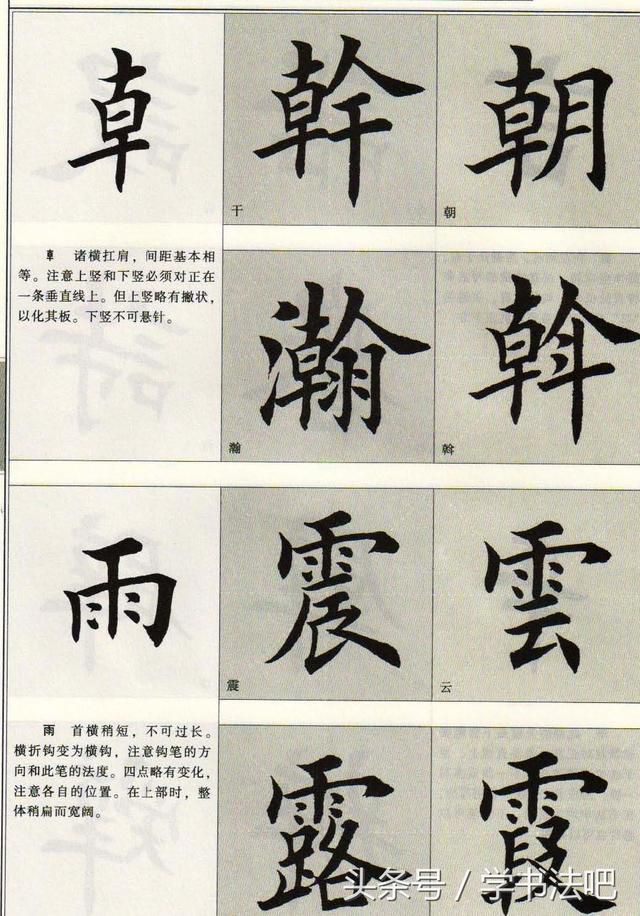 龺 幹 朝
干 朝
龺 诸横扛肩，间距基本相
等。注意上竖和下竖必须对正在
一条垂直线上。但上竖略有撇状，
以化其板。下竖不可悬针。
瀚 斡
瀚 斡
雨 震 雲
震 云
雨 首横稍短，不可过长。
横折钩变为横钩，注意钩笔的方
向和此笔的法度。四点略有变化，
注意各自的位置。在上部时，整
体稍扁而宽阔。
露 霞
头条号 / 学书法吧